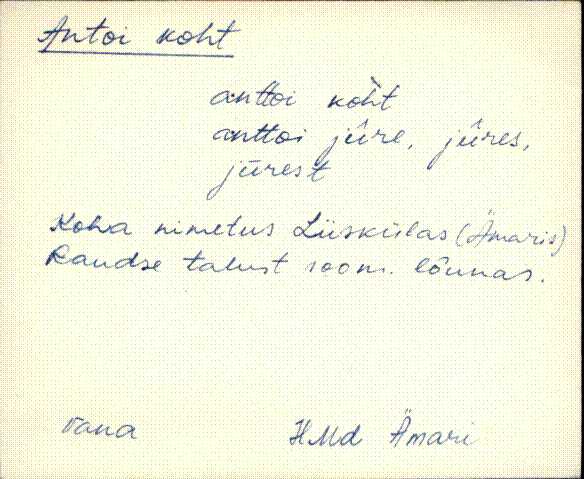 Antoi koht
anttoi koht
anttoi jüre, jüres,
jürest
Koha nimetus Liiskülas (Ämaris)
Raudse talust 100 m. lõunas.
vana HMd Ämari